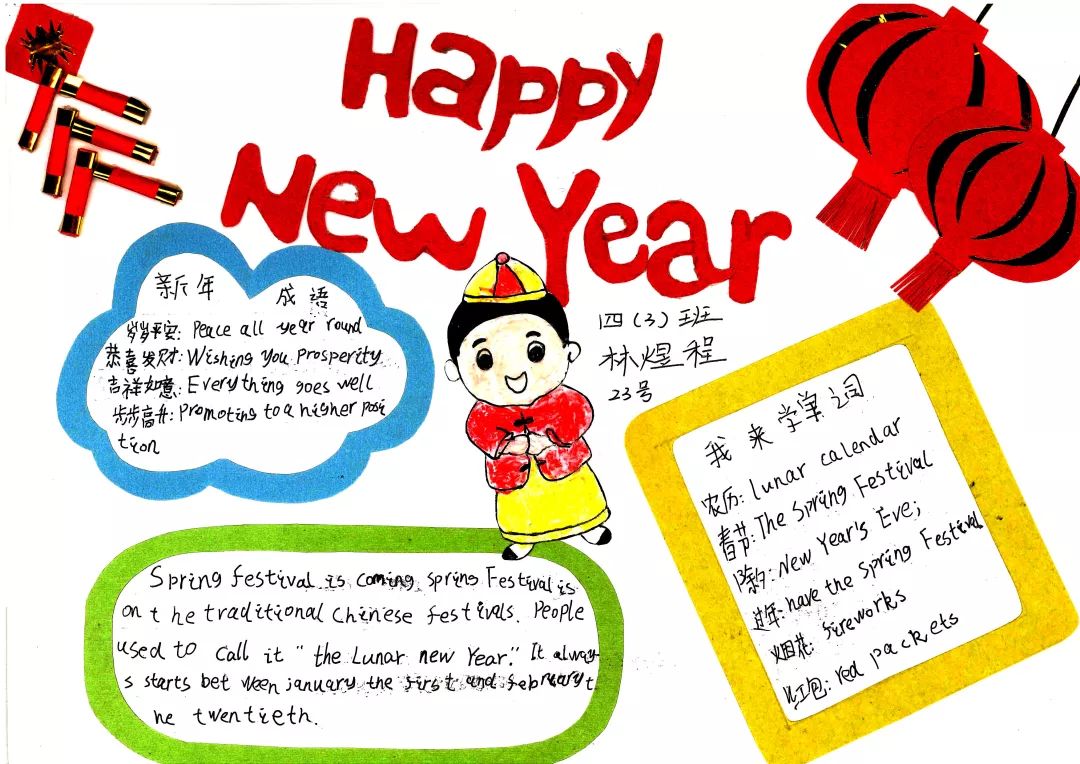 Happy
New Year
新年 成语
岁岁平安: Peace all year round
恭喜发财: Wishing You Prosperity
吉祥如意: Everything goes well
步步高升: Promoting to a higher posi
tion
四（3）班
林煜程
23号
我来学单词
农历: lunar calendar
春节: The Spring Festival
除夕: New Year's Eve;
过年: have the Spring Festival
烟花: fireworks
红包: red packets
Spring festival is coming, spring Festival is
on t he traditional Chinese festivals. People
used to call it "the Lunar new Year." It alway
s starts bet ween january the first and february t
he twentieth.